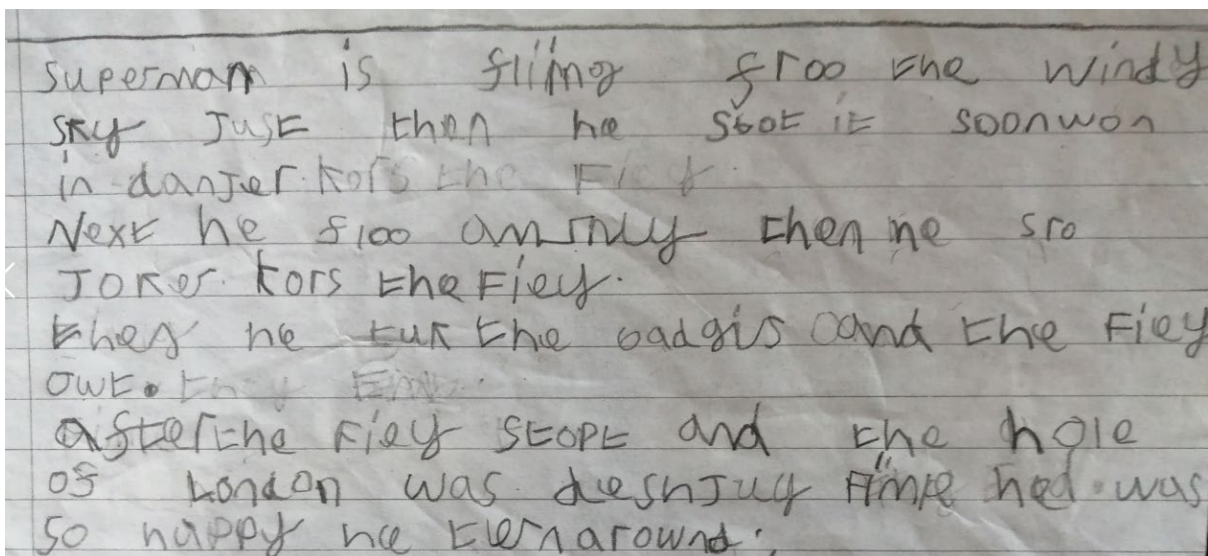 superman is fliing froo the windy
sky Just then he sbot it soonwon
in danJer. kors the
Next he floo then he sro
JOker. kors the Fiey.
then he tuk the badgis and the Fiey
owt.
after the Fiey stopt and the hole
of London was hed was
so happy he ternarownd.